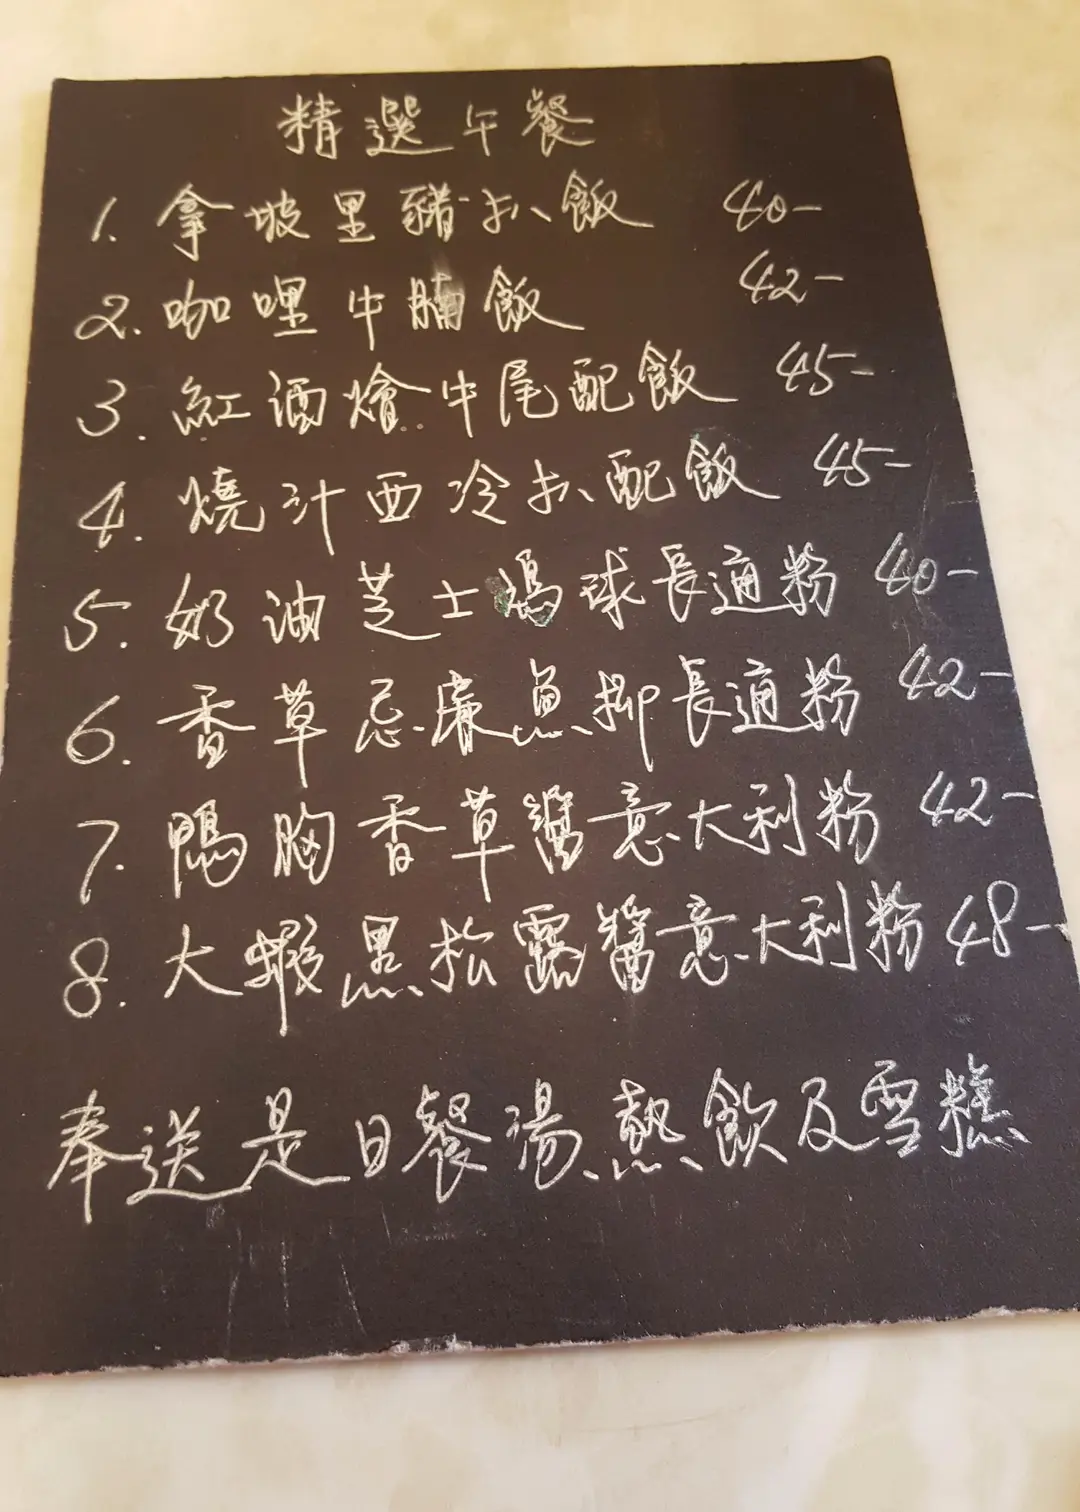 精選午餐
1. 拿坡里豬扒飯 40-
2. 咖哩牛腩飯 42-
3. 紅酒燴牛尾配飯 45-
4. 燒汁西冷扒配飯 45-
5. 奶油芝士鳮球長通粉 40-
6. 香草忌廉魚柳長通粉 42-
7. 鴨胸香草醬意大利粉 42-
8. 大蝦黑松露醬意大利粉 48-
奉送是日餐湯、熱飲及雪糕